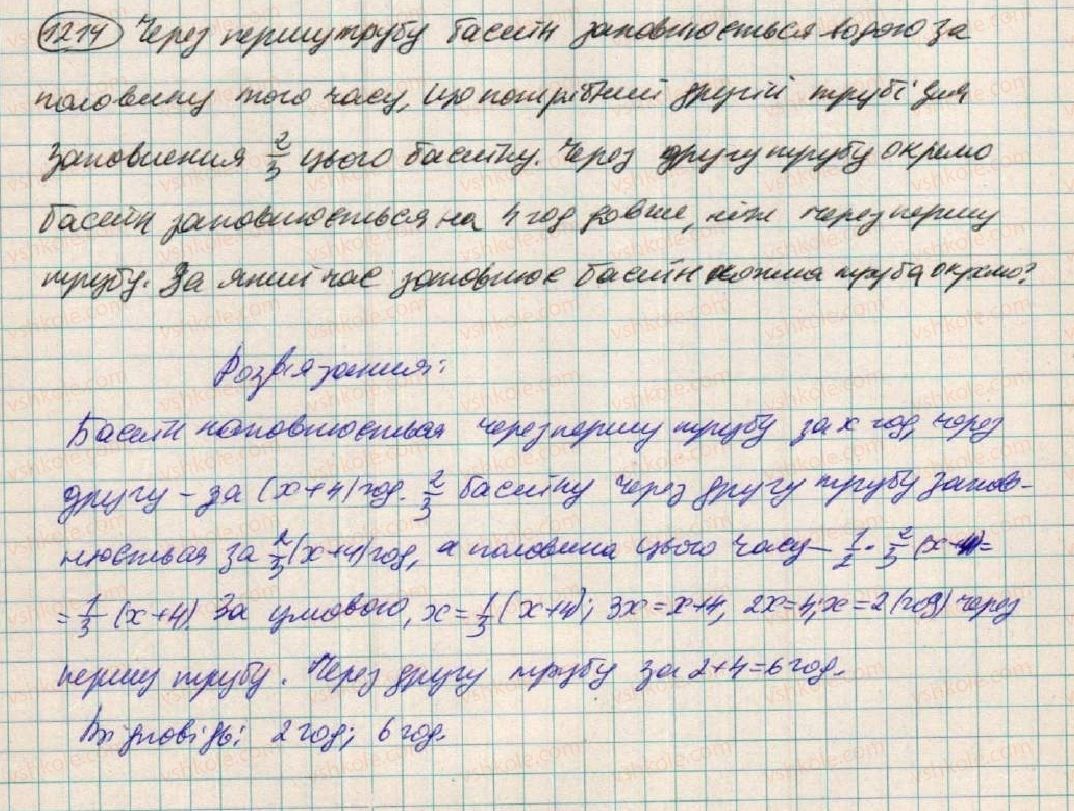 1214 Через першу трубу басейн заповнюється водою за
половину того часу, що потрібний другій трубі для
заповнення 2/3 цього басейну. Через другу трубу окремо
басейн заповнюється на 4 год довше, ніж через першу
трубу. За який час заповнює басейн кожна труба окремо?
Розв'язання:
Басейн наповнюється через першу трубу за x год, через
другу – за (x+4) год. 2/3 басейну через другу трубу запов-
нюється за 2/3(x+4) год, а половина цього часу – 1/2 · 2/3 (x+4) =
= 1/3 (x+4). За умовою, x = 1/3 (x+4); 3x = x+4, 2x = 4; x = 2 (год) через
першу трубу. Через другу трубу за 2+4=6 год.
Відповідь: 2 год; 6 год.